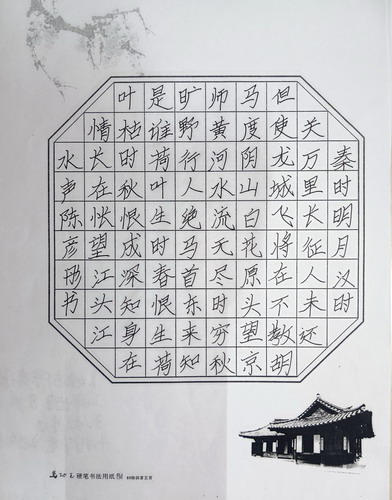 秦时明月汉时
关万里长征人未还
但使龙城飞将在不教胡
马度阴山白花原头望京
师黄河水流无尽时穷秋
旷野行人绝马首东来知
是谁荷叶生时春恨生荷
叶枯时秋恨成深知身在
情长在怅望江头江
水声陈彦彤书
硬笔书法用纸